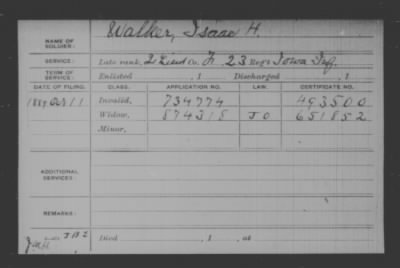 Walker, Isaac H.
NAME OF SOLDIER:
SERVICE: Late rank, 2 Lieut Co. F, 23 Reg't Iowa Inf.
TERM OF SERVICE: Enlisted , 1 Discharged , 1
DATE OF FILING. CLASS. APPLICATION NO. LAW. CERTIFICATE NO.
1889 Oct 11 Invalid, 734774 493500
Widow, 874318 J O 651852
Minor,
ADDITIONAL SERVICES:
REMARKS:
Died , 1 , at